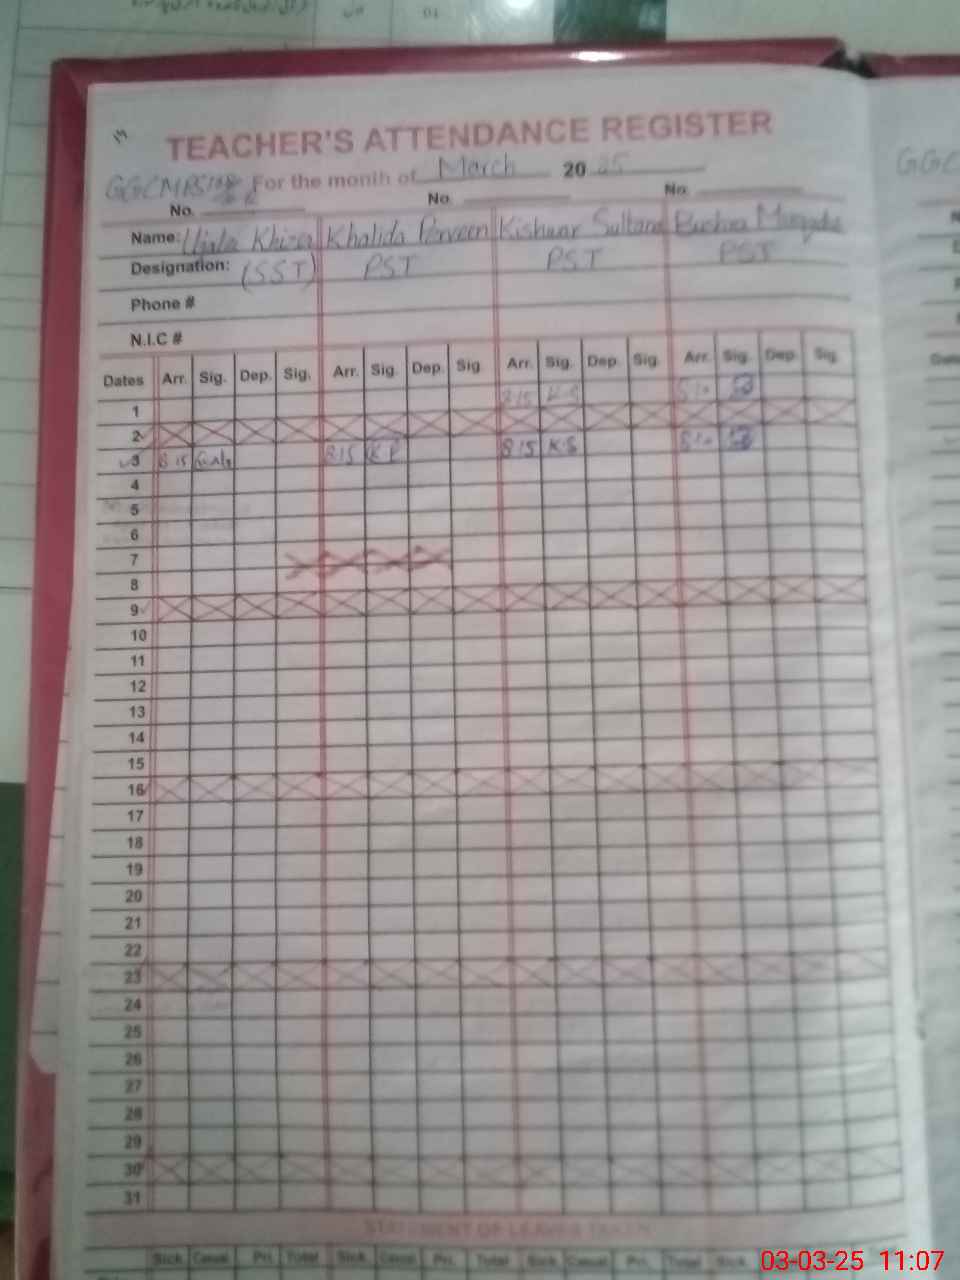 TEACHER'S ATTENDANCE REGISTER
For the month of March 2025
No. No. No.
Name: Khalida Parveen Kishwar Sultana Bushra
Designation: (SST) PST PST PST
Phone #
N.I.C #
Dates Arr. Sig. Dep. Sig. Arr. Sig. Dep. Sig Arr. Sig. Dep. Sig. Arr. Sig. Dep. Sig.
1 8:15 K.S
2
3 8 15 8:15 K.P 8:15 K.S
4
5
6
7
8
9
10
11
12
13
14
15
16
17
18
19
20
21
22
23
24
25
26
27
28
29
30
31
STATEMENT OF LEAVES TAKEN
Sick Casual Pri. Total Sick Casual Pri. Total Sick Casual Pri. Total Sick Casual Pri. Total
03-03-25 11:07